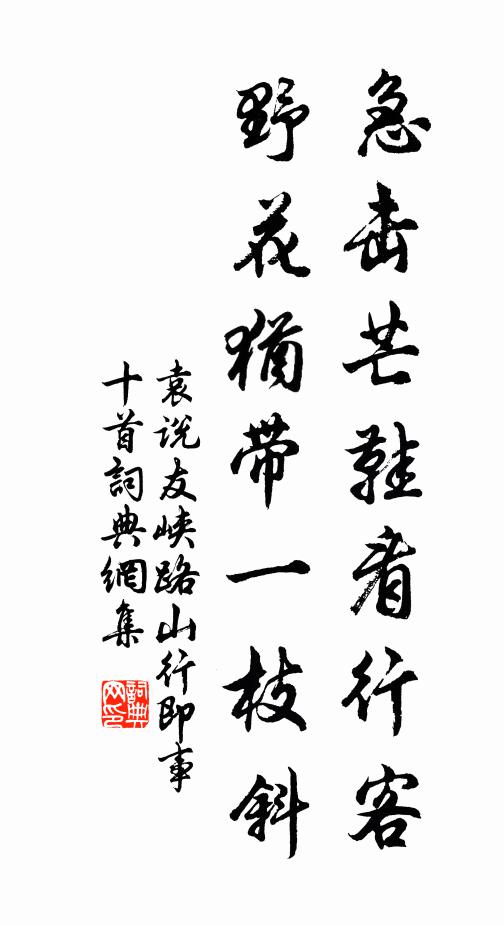 急击芒鞋看行客
野花犹带一枝斜
袁说友峡路山行即事
十首詞典網集
詞典
网印